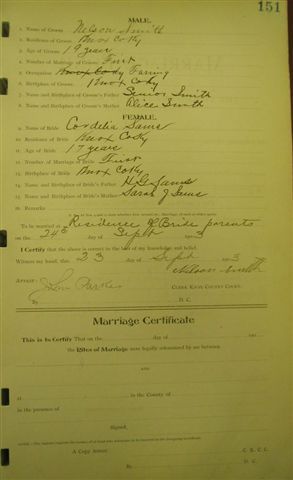 151
MALE.
1. Name of Groom Nelson Smith
2. Residence of Groom Knox Co Ky
3. Age of Groom 19 years
4. Number of Marriage of Groom First
5. Occupation Knox Co Ky Farming
6. Birthplace of Groom Knox Co Ky
7. Name and Birthplace of Groom's Father Senior Smith
8. Name and Birthplace of Groom's Mother Alice Smith
FEMALE.
9. Name of Bride Cordelia Sams
10. Residence of Bride Knox Co Ky
11. Age of Bride 17 years
12. Number of Marriage of Bride First
13. Birthplace of Bride Knox Co Ky
14. Name and Birthplace of Bride's Father H. G. Sams
15. Name and Birthplace of Bride's Mother Sarah J Sams
16. Remarks
To be married at Residence of Bride parents
on 24th day of Septr 3
I Certify that the above is correct to the best of my knowledge and belief.
Witness my hand, this 23 day of Septr 3
Nelson Smith
Attest: Parker
Clerk Knox County Court.
By D. C.
Marriage Certificate
This is to Certify That on the day of
the Rites of Marriage were legally solemnized by me between
AND
at in the County of
in the presence of
Signed,
A Copy Attest: C. K. C. C.
By D. C.